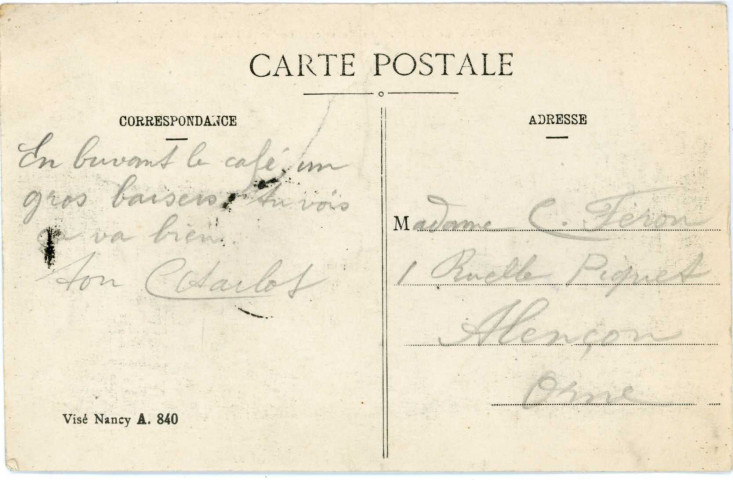 CARTE POSTALE
CORRESPONDANCE
En buvant le café, un
gros baisers tu vois
ça va bien.
ton Charlot
Visé Nancy A. 840
ADRESSE
Madame C. Féron
1 Ruelle Piquet
Alençon
Orne